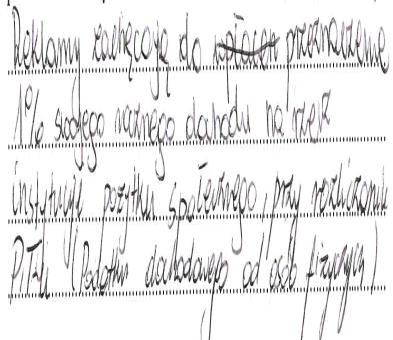 Reklamy zachęcają do wpłaceń przeznaczenie
1% swojego rocznego dochodu na rzecz
instytucji pożytku społecznego, przy rozliczaniu
PITu (Podatku dochodowego od osób fizycznych)